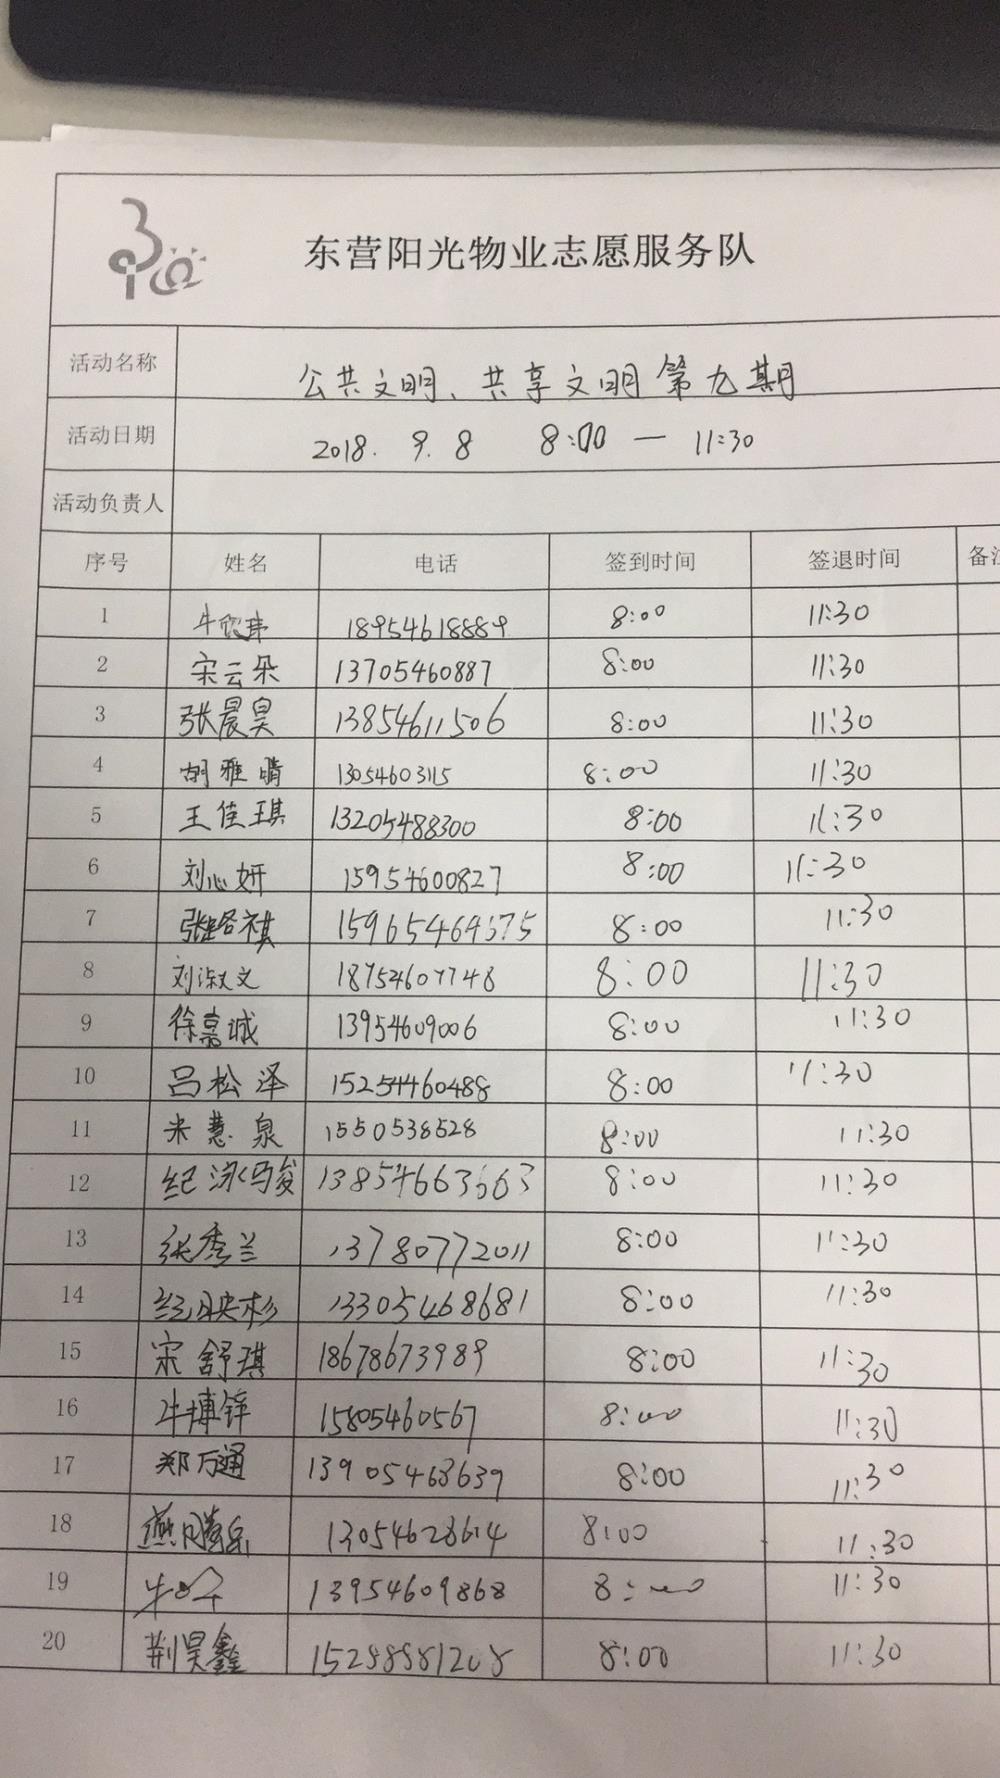 东营阳光物业志愿服务队
活动名称 公共文明、共享文明第九期
活动日期 2018. 9. 8 8:00 — 11:30
活动负责人
序号 姓名 电话 签到时间 签退时间 备注
1 18954618889 8:00 11:30
2 宋云朵 13705460887 8:00 11:30
3 张晨昊 13854611506 8:00 11:30
4 胡雅晴 13054603115 8:00 11:30
5 王佳琪 13205488300 8:00 11:30
6 刘心妍 15954600827 8:00 11:30
7 张路祺 8:00 11:30
8 刘淑文 18754607748 8:00 11:30
9 徐嘉诚 13954609006 8:00 11:30
10 吕松泽 15254460488 8:00 11:30
11 米慧泉 1550538528 8:00 11:30
12 纪泳骏 13854663663 8:00 11:30
13 张秀兰 13780772011 8:00 11:30
14 纪映杉 13305468681 8:00 11:30
15 宋舒琪 18678673989 8:00 11:30
16 牛博锌 15805460567 8:00 11:30
17 郑万通 13905463639 8:00 11:30
18 13054628614 8:00 11:30
19 13954609868 8:00 11:30
20 荆昊鑫 15288881208 8:00 11:30